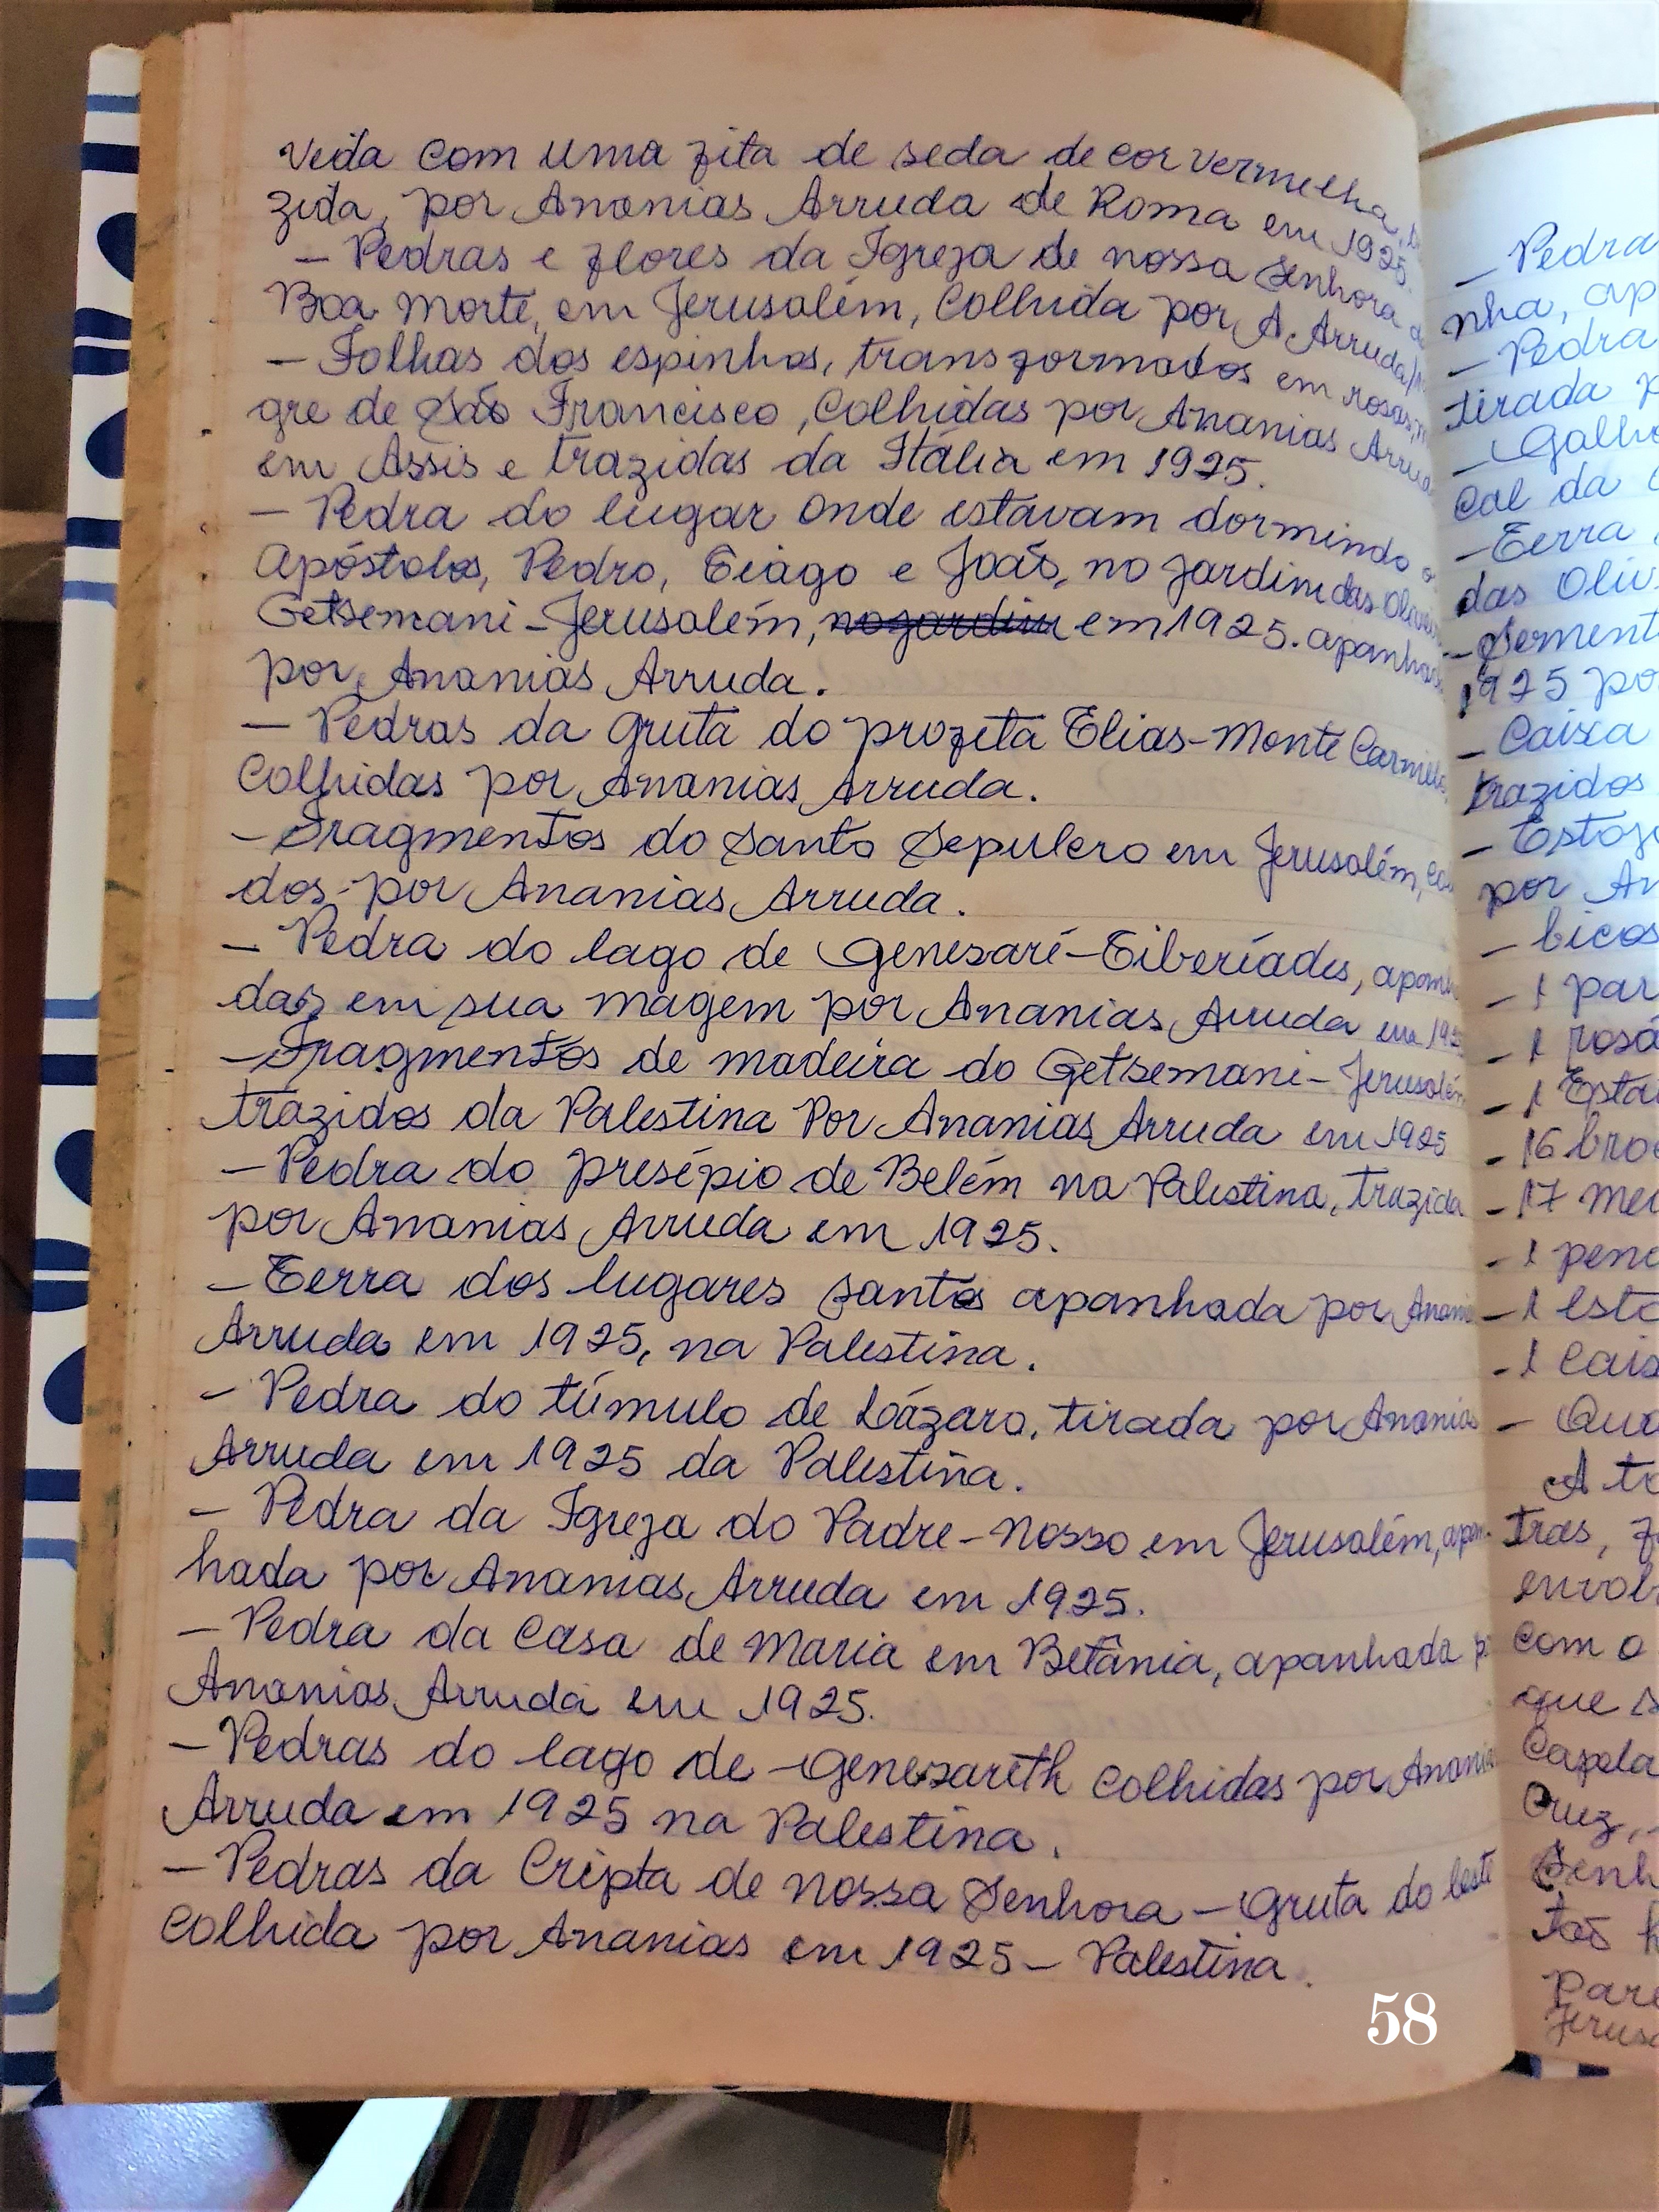 vida com uma fita de seda de cor vermelha,
zida, por Ananias Arruda de Roma em 1925.
– Pedras e flores da Igreja de nossa Senhora
Boa Morte, em Jerusalém, colhida por A. Arruda
– Folhas dos espinhos, transformados em rosas,
gre de São Francisco, colhidas por Ananias
em Assis e trazidas da Itália em 1925.
– Pedra do lugar onde estavam dormindo
Apóstolos, Pedro, Tiago e João, no jardim das
Getsemani – Jerusalém, no jardim em 1925. apanhada
por Ananias Arruda.
– Pedras da gruta do profeta Elias – Monte Carmelo,
colhidas por Ananias Arruda.
– Fragmentos do Santo Sepulcro em Jerusalém,
dos por Ananias Arruda.
– Pedra do lago de Genesaré – Tiberíades,
das em sua magem por Ananias Arruda em
– Fragmentos de madeira do Getsemani – Jerusalém
trazidos da Palestina Por Ananias Arruda em 1925
– Pedra do presépio de Belém na Palestina, trazida
por Ananias Arruda em 1925.
– Terra dos lugares santos apanhada por
Arruda em 1925, na Palestina.
– Pedra do túmulo de Lázaro, tirada por Ananias
Arruda em 1925 da Palestina.
– Pedra da Igreja do Padre-Nosso em Jerusalém, apan-
hada por Ananias Arruda em 1925.
– Pedra da Casa de Maria em Betânia, apanhada
Ananias Arruda em 1925.
– Pedras do lago de Genezareth colhidas por
Arruda em 1925 na Palestina.
– Pedras da Cripta de nossa Senhora – Gruta do leste
colhida por Ananias em 1925 – Palestina.
58
– Pedra
nha, ap
– Pedra
tirada p
– Galho
cal da
– Terra
das Oliv
– Sement
1925 po
– Caixa
trazidos
por
– bicos
– 1 par
– 1 rosá
– 1
– 16
– 17
– 1
– 1
– 1
–
A
tras,
com o
que
Capela
Cruz,
Senh